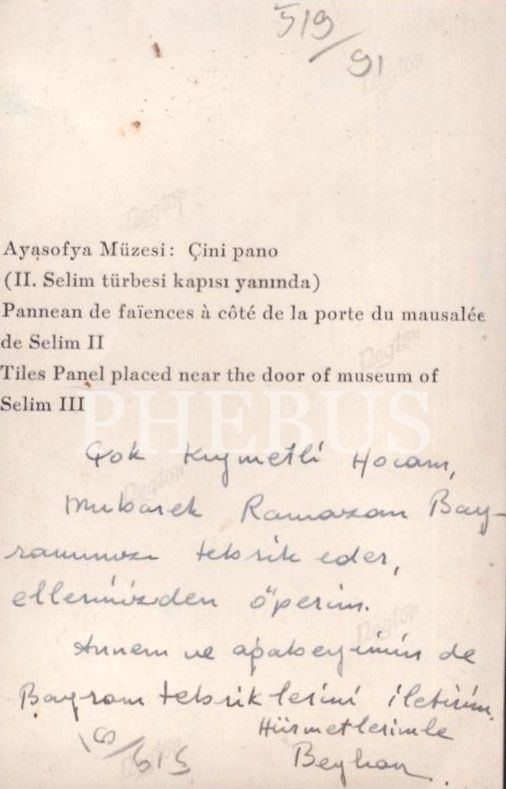 519/91
Ayasofya Müzesi: Çini pano
(II. Selim türbesi kapısı yanında)
Pannean de faïences à côté de la porte du mausalée
de Selim II
Tiles Panel placed near the door of museum of
Selim III
PHEBUS
Çok Kıymetli Hocam,
Mubarek Ramazan Bay-
ramınızı tebrik eder,
ellerinizden öperim.
Annem ve ağabeyimin de
Bayram tebriklerini iletirim.
Hürmetlerimle
Beyhan